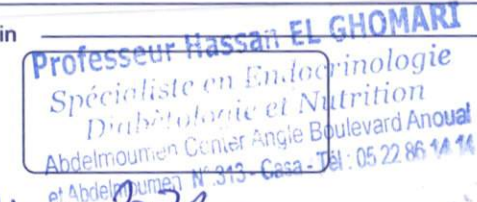 in
Professeur Hassan EL GHOMARI
Spécialiste en Endocrinologie
Diabétologie et Nutrition
Abdelmoumen Center Angle Boulevard Anoual
et Abdelmoumen N° 313 - Casa - Tél : 05 22 86 14 14